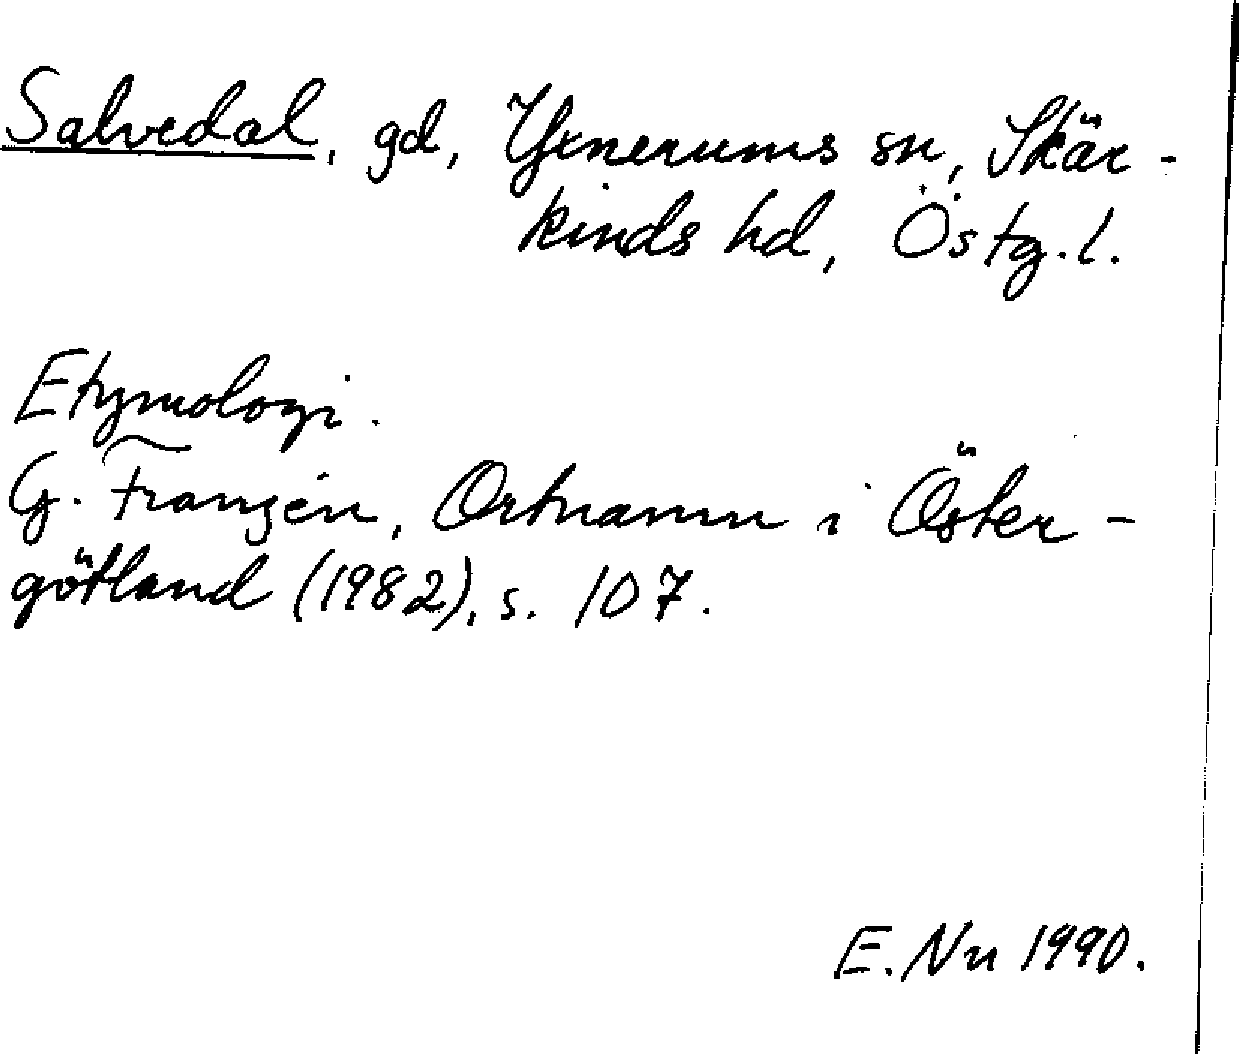 Salvedal, gd, Yxnerums sn, Skär-
kinds hd, Östg.l.
Etymologi.
G. Franzén, Ortnamn i Öster-
götland (1982), s. 107.
E. Nn 1990.